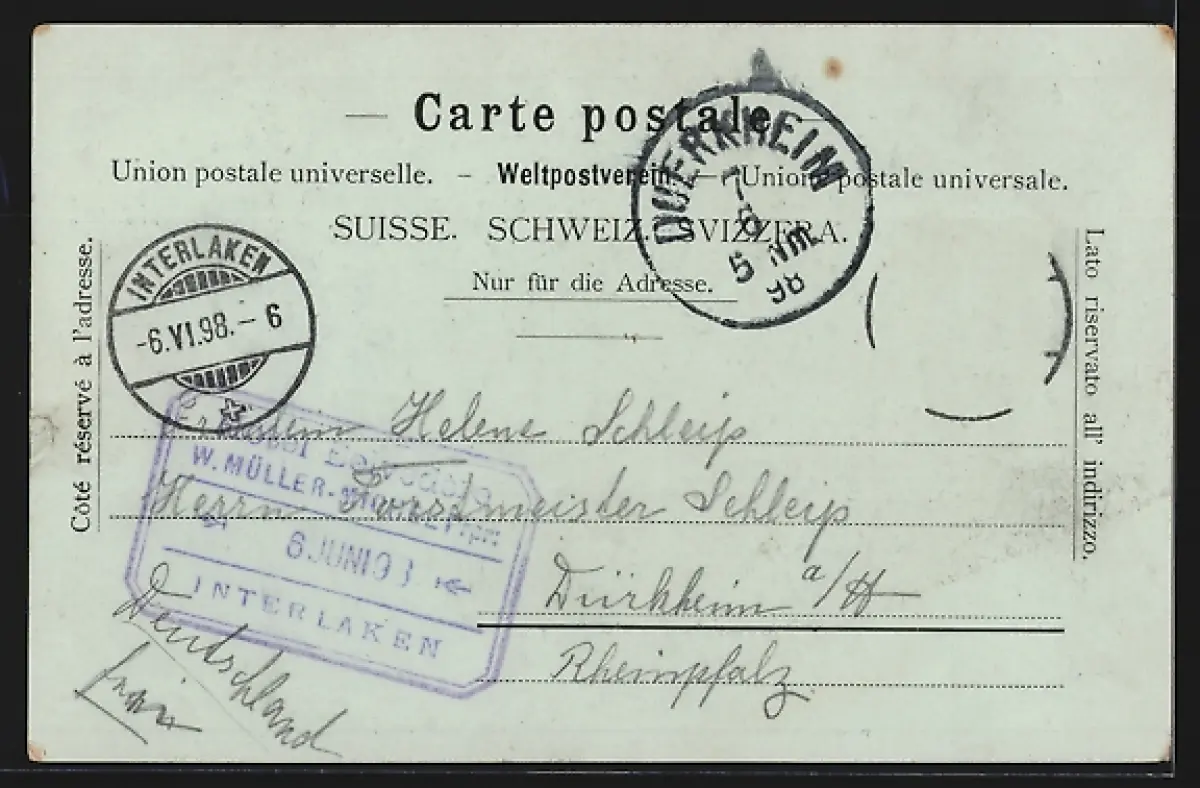 Carte postale
Union postale universelle. – Weltpostverein. – Unione postale universale.
SUISSE. SCHWEIZ. SVIZZERA.
Nur für die Adresse.
Côté réservé à l'adresse.
Lato riservato all' indirizzo.
DUERKHEIM
7
5 Nm.
98
INTERLAKEN
-6.VI.98.-6
Fräulein Helene Schleip
Herrn Forstmeister Schleip
Dürkheim a/H
Rheinpfalz
Deutschland
W. MÜLLER-
6 JUNI 9
INTERLAKEN